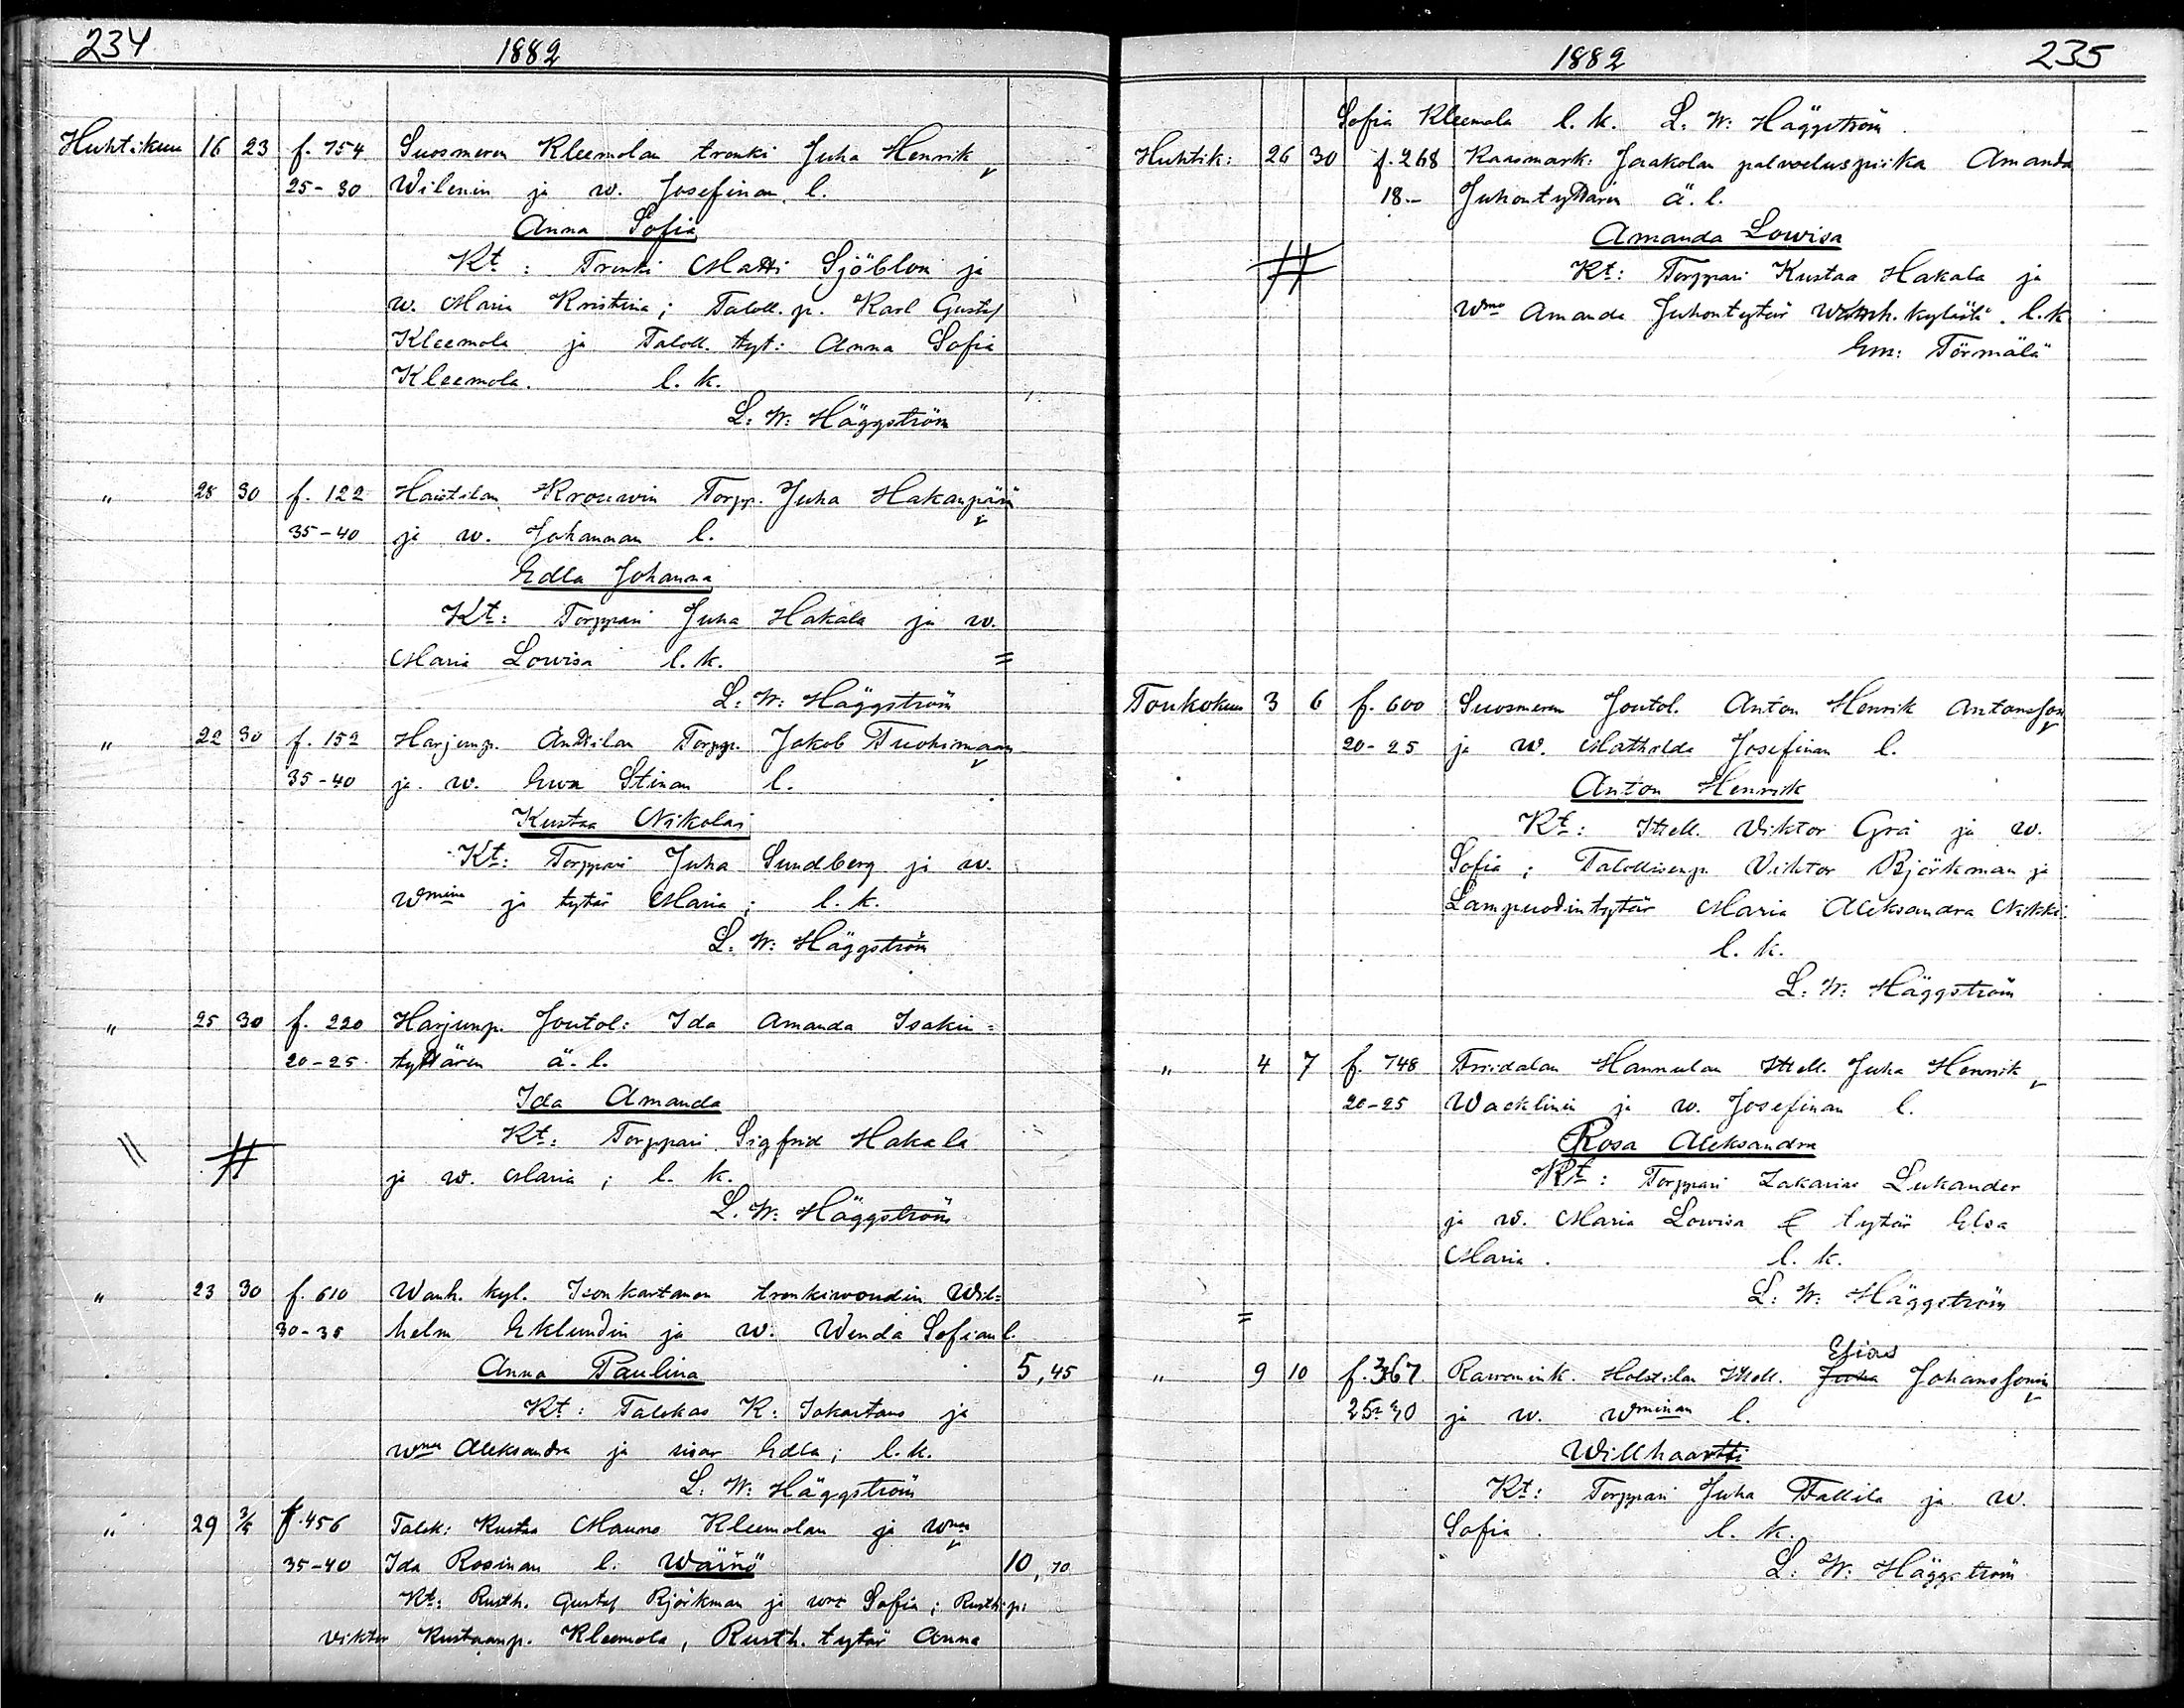 234
1882
Huhtikuu 16 23 f. 754 Suosmeren Kleemolan trenki Juha Henrik
25-30 Wilenin ja w. Josefinan l.
Anna Sofia
Kt: Trenki Matti Sjöblom ja
w. Maria Kristina; Taloll. p. Karl Gustaf
Kleemola ja Taloll. tyt: Anna Sofia
Kleemola. l. k.
L: W: Häggström
" 28 30 f. 122 Haistilan Krouwin Torpp. Juha Hakanpään
35-40 ja w. Johannan l.
Edla Johanna
Kt: Torppari Juha Hakala ja w.
Maria Lowisa l. k. =
L: W: Häggström
" 22 30 f. 152 Harjunp. Anttilan Torpp. Jakob Tuohimaan
35-40 ja w. Ewa Stinan l.
Kustaa Nikolai
Kt: Torppari Juha Sundberg ja w.
Wmina ja tytär Maria; l. k.
L: W: Häggström
" 25 30 f. 220 Harjunp. Joutol: Ida Amanda Isakin=
20-25 tyttären ä. l.
Ida Amanda
Kt: Torppari Sigfrid Hakala
// # ja w. Maria; l. k.
L. W: Häggström
" 23 30 f. 610 Wanh. kyl. Isonkartanon trenkiwoudin Wil=
30-35 helm Eklundin ja w. Wenda Sofian l.
Anna Paulina 5,45
Kt: Talokas K: Isokartano ja
wmo Aleksandra ja sisar Edla; l. k.
L: W: Häggström
" 29 3/5 f. 456 Talok: Kustaa Mauno Kleemolan ja wmon
35-40 Ida Rosinan l: Wäinö 10,70
Kt: Rusth. Gustaf Björkman ja wmo Sofia; Rusth: p:
Viktor Kustaanp. Kleemola, Rusth. tytär Anna
1882
235
Sofia Kleemola l. k. L: W: Häggström.
Huhtik: 26 30 f. 268 Kaasmark: Jaakolan palweluspiika Amanda
18.- Juhontyttären ä. l.
Amanda Lowisa
# Kt: Torppari Kustaa Hakala ja
Wmo Amanda Juhontytär Wanh. kylästä. l. k
Em: Törmälä
Toukokuu 3 6 f. 600 Suosmeren Joutol. Anton Henrik Antonsson
20-25 ja w. Mathilda Josefinan l.
Anton Henrik
Kt: Itsell. Viktor Grå ja w.
Sofia; Talollisenp. Viktor Björkman ja
Lampuodintytär Maria Aleksandra Nikki:
l. k.
L: W: Häggström
" 4 7 f. 748 Friidalan Hannulan Itsell. Juha Henrik
20-25 Wacklinin ja w. Josefinan l.
Rosa Aleksandra
Kt: Torppari Zakarias Lukander
ja w. Maria Lowisa & tytär Elsa
Maria. l. k.
L: W: Häggström
=
Esias
" 9 10 f. 367 Rawanink. Holstilan Itsell. Juha Johanssonin
25-30 ja w. Wminan l.
Willhaartti
Kt: Torppari Juha Tallila ja w.
Sofia. l. k.
L: W: Häggström